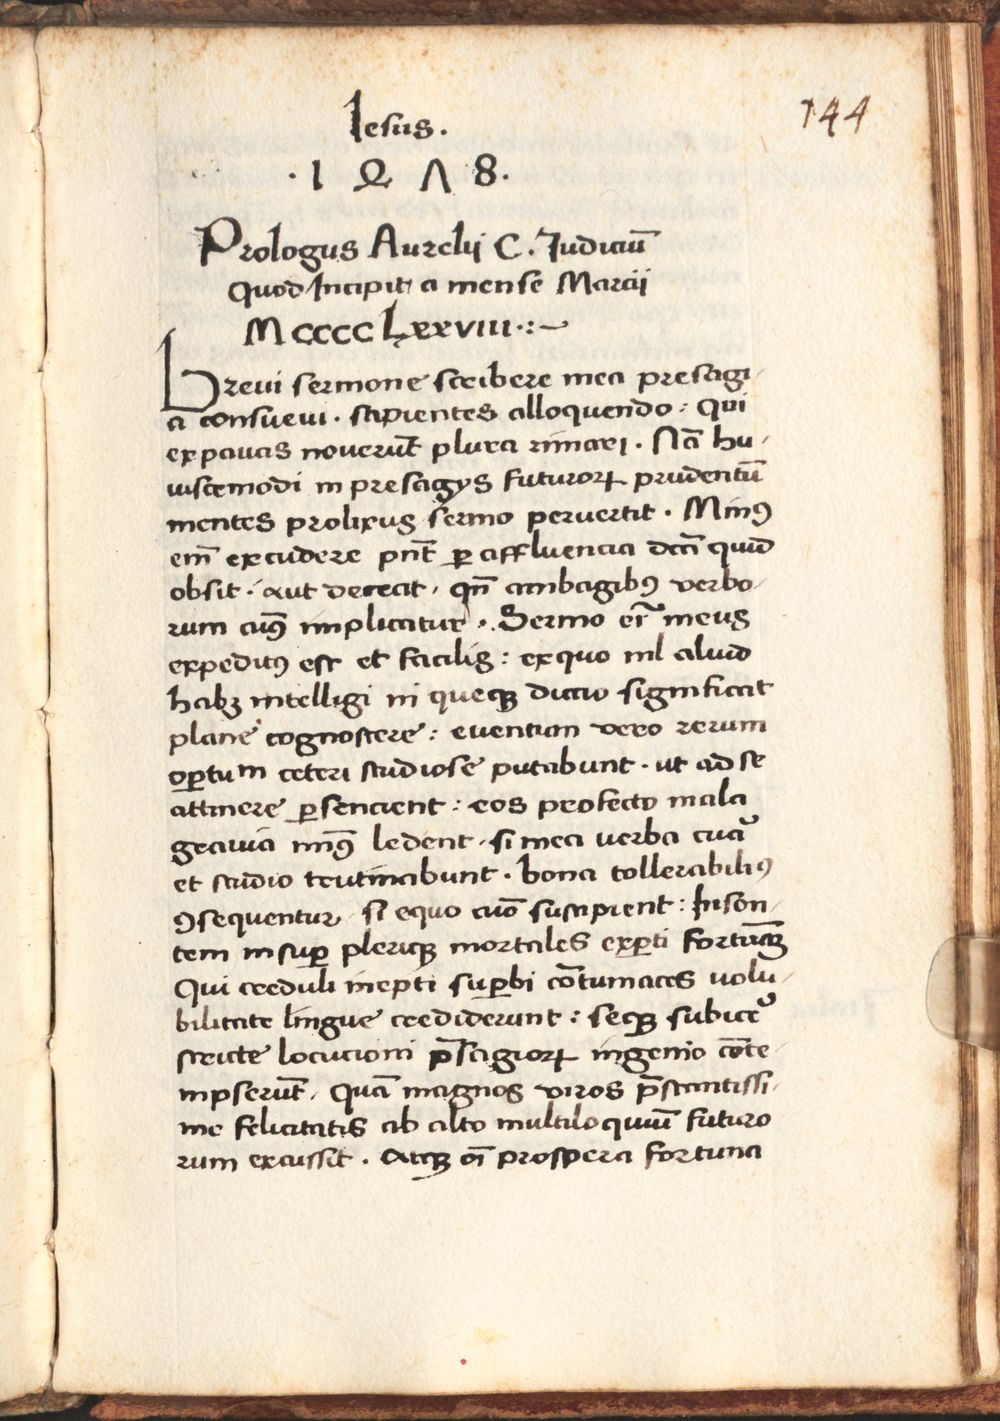 Iesus.
144
. 1 Ꝝ Λ 8.
Prologus Aurelij C. Judiciū
Quod Incipit a mense Marcii
M CCCC Lxxviii.:~
Breui sermone scribere mea presagi-
a consueui. sapientes alloquendo: Qui
ex paucis noverūt plura rimari. Nā hu-
iuscemodi in presagijs futurorꝝ prudentū
mentes prolixus sermo peruertit. Minꝰ
em̄ excudere pn̄t ꝑ affluencia dcā quid
obsit. aut deceat, qn̄ ambagibꝰ verbo-
rum cuiꝰ implicatur. Sermo
meus
expeditꝰ est et facilis: ex quo nil aliud
habꝫ intelligi ni queqꝫ dictio significat
plane cognoscere: euentum vero rerum
ceteri studiose putabunt. ut ad se
attinere ꝑsencient: eos profecto mala
grauia minꝰ ledent. si mea verba cura
et studio trutinabunt. bona tollerabiliꝰ
ꝯsequentur, si equo aīo suscipient: Inson-
tem insuꝑ pleriqꝫ mortales exꝑti fortunā
Qui creduli inepti suꝑbi cōtumaces volu-
bilitate lingue crediderunt: seqꝫ
stricte locucioni p̄sagiorꝝ ingenio cōte-
mpserūt. Quā magnos viros p̄stantissi-
me felicitatis ab alto multiloquiū futuro
rum excussit. Atqꝫ oī prospera fortuna